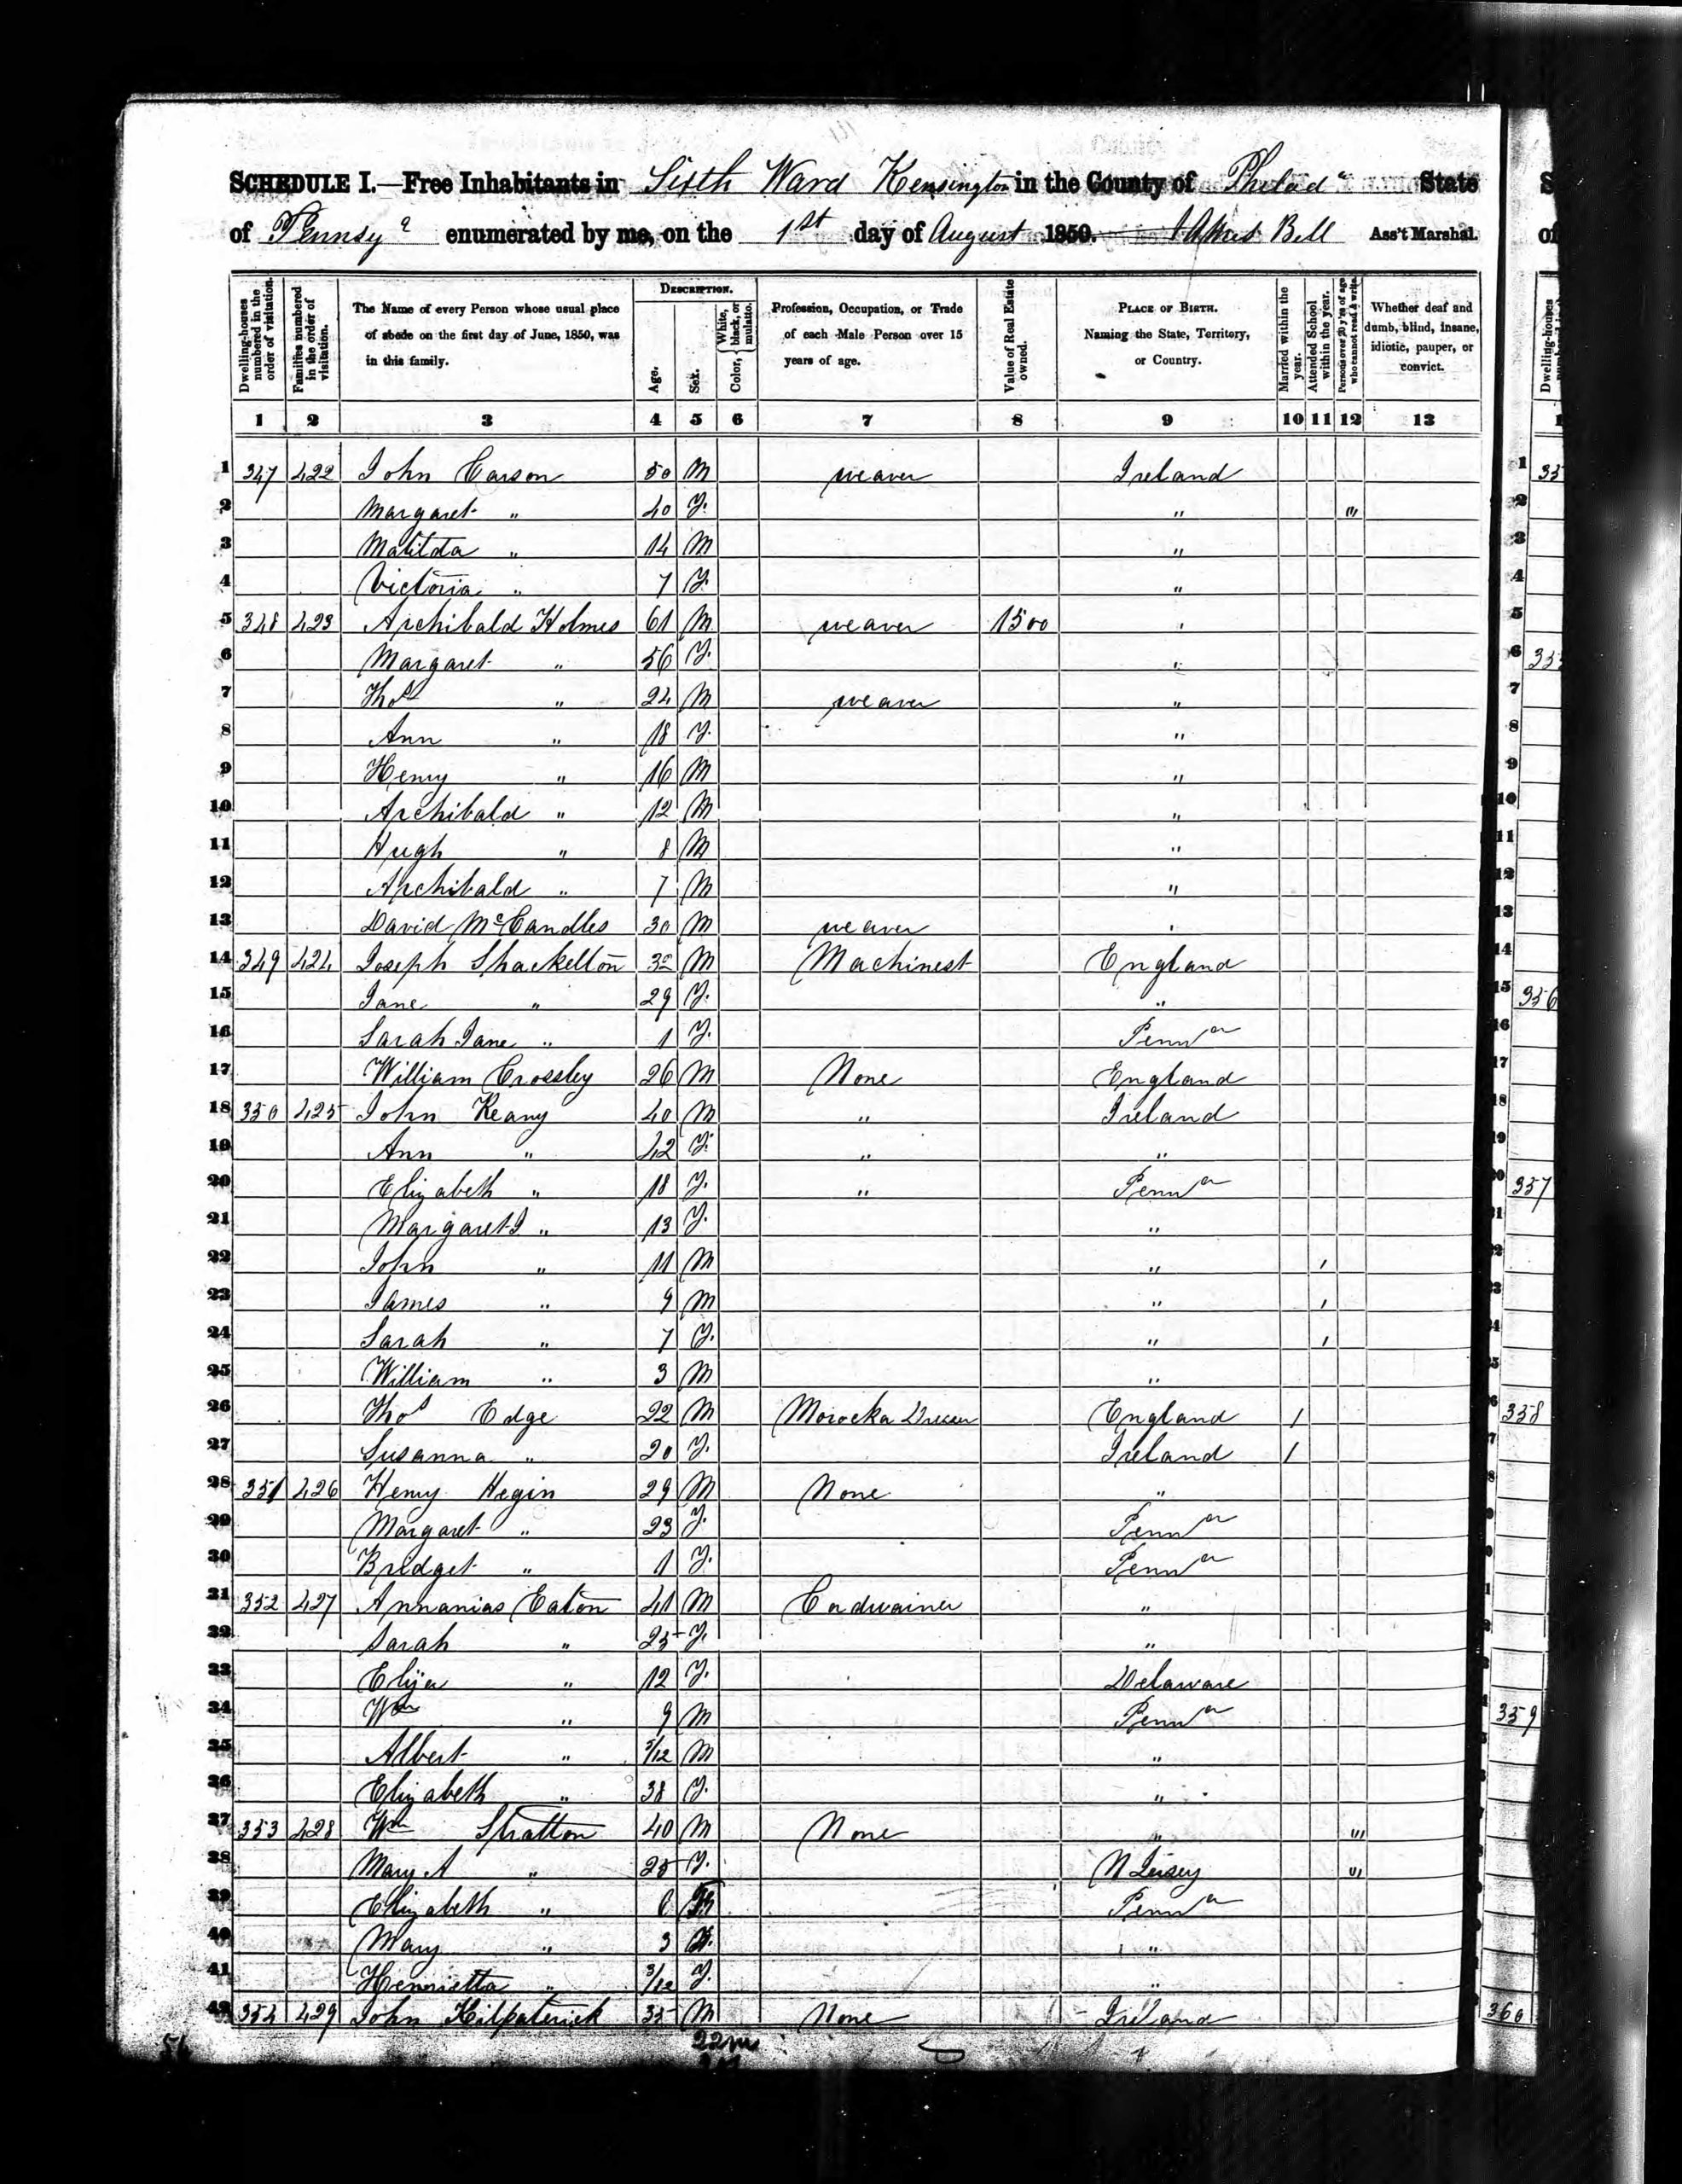 SCHEDULE I.—Free Inhabitants in Sixth Ward Kensington in the County of Philada State
of Pennsya enumerated by me, on the 1st day of August 1850. Bell Ass't Marshal.
Dwelling-houses numbered in the order of visitation.
Families numbered in the order of visitation.
The Name of every Person whose usual place of abode on the first day of June, 1850, was in this family.
DESCRIPTION.
Age.
Sex.
Color, { White, black, or mulatto.
Profession, Occupation, or Trade of each Male Person over 15 years of age.
Value of Real Estate owned.
PLACE OF BIRTH. Naming the State, Territory, or Country.
Married within the year.
Attended School within the year.
Persons over 20 y'rs of age who cannot read & write.
Whether deaf and dumb, blind, insane, idiotic, pauper, or convict.
1 2 3 4 5 6 7 8 9 10 11 12 13
1 347 422 John Carson 50 M weaver Ireland
2 Margaret " 40 F. " "'
3 Matilda " 14 M "
4 Victoria " 7 F. "
5 348 423 Archibald Holmes 61 M weaver 1500 "
6 Margaret " 56 F. "
7 Thos " 24 M weaver "
8 Ann " 18 F. "
9 Henry " 16 M "
10 Archibald " 12 M "
11 Hugh " 8 M "
12 Archibald " 7 M "
13 David McCandles 30 M weaver "
14 349 424 Joseph Shackelton 32 M Machinest England
15 Jane " 29 F. "
16 Sarah Jane " 1 F. Penna
17 William Crossley 26 M None England
18 350 425 John Keany 40 M " Ireland
19 Ann " 42 F. " "
20 Elizabeth " 18 F. " Penna
21 Margaret J " 13 F. "
22 John " 11 M " /
23 James " 9 M " /
24 Sarah " 7 F. " /
25 William " 3 M "
26 Thos Edge 22 M Morocka Dresser England /
27 Susanna " 20 F. Ireland /
28 351 426 Henry Hegin 29 M None "
29 Margaret " 23 F. Penna
30 Bridget " 1 F. Penna
31 352 427 Annanias Eaton 41 M Cordwainer "
32 Sarah " 25 F. "
33 Elija " 12 F. Delaware
34 Wm " 9 M Penna
35 Albert " /12 M "
36 Elizabeth " 38 F. "
37 353 428 Wm Stratton 40 M None " "'
38 Mary A " 25 F. N Jersey "'
39 Elizabeth " F Penna
40 Mary " 3 F. "
41 Henrietta " 3/12 F. "
42 354 429 John Kilpaterick 35 M None Ireland
22 m